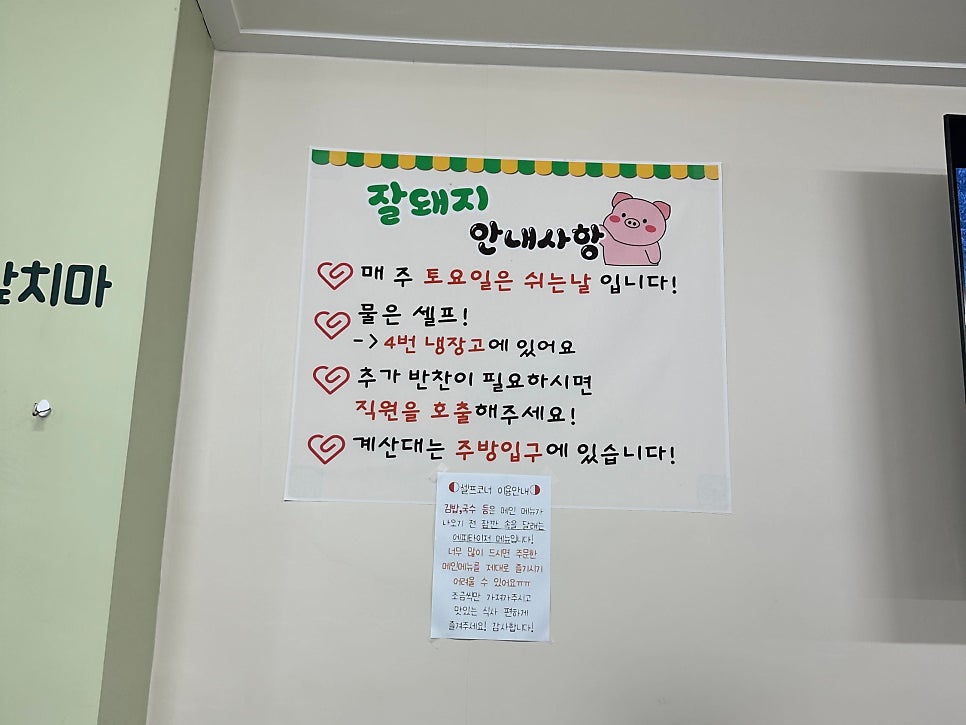 앞치마
잘돼지
안내사항
매 주 토요일은 쉬는날 입니다!
물은 셀프!
-> 4번 냉장고에 있어요
추가 반찬이 필요하시면
직원을 호출해주세요!
계산대는 주방입구에 있습니다!
셀프코너 이용안내
김밥,국수 등을 메인 메뉴가
나오기 전 잠깐 속을 달래는
에피타이저 메뉴입니다!
너무 많이 드시면 주문한
메인메뉴를 제대로 즐기시기
어려울 수 있어요ㅠㅠ
조금씩만 가져가주시고
맛있는 식사 편하게
즐겨주세요! 감사합니다!